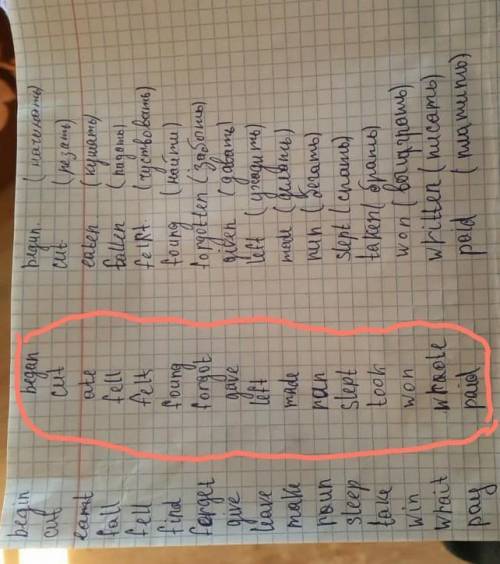 begin began begun (начинать)
cut cut cut (резать)
eamt ate eaten (кушать)
fall fell fallen (падать)
fell felt felt (чуствовать)
find foung foung (найти)
forget forgot forgotten (забыть)
give gave given (давать)
leave left left (уходить)
make made made (делать)
roun ran run (бегать)
sleep slept slept (спать)
take took taken (брать)
win won won (выиграть)
wrait whaote written (писать)
pay paid paid (платить)